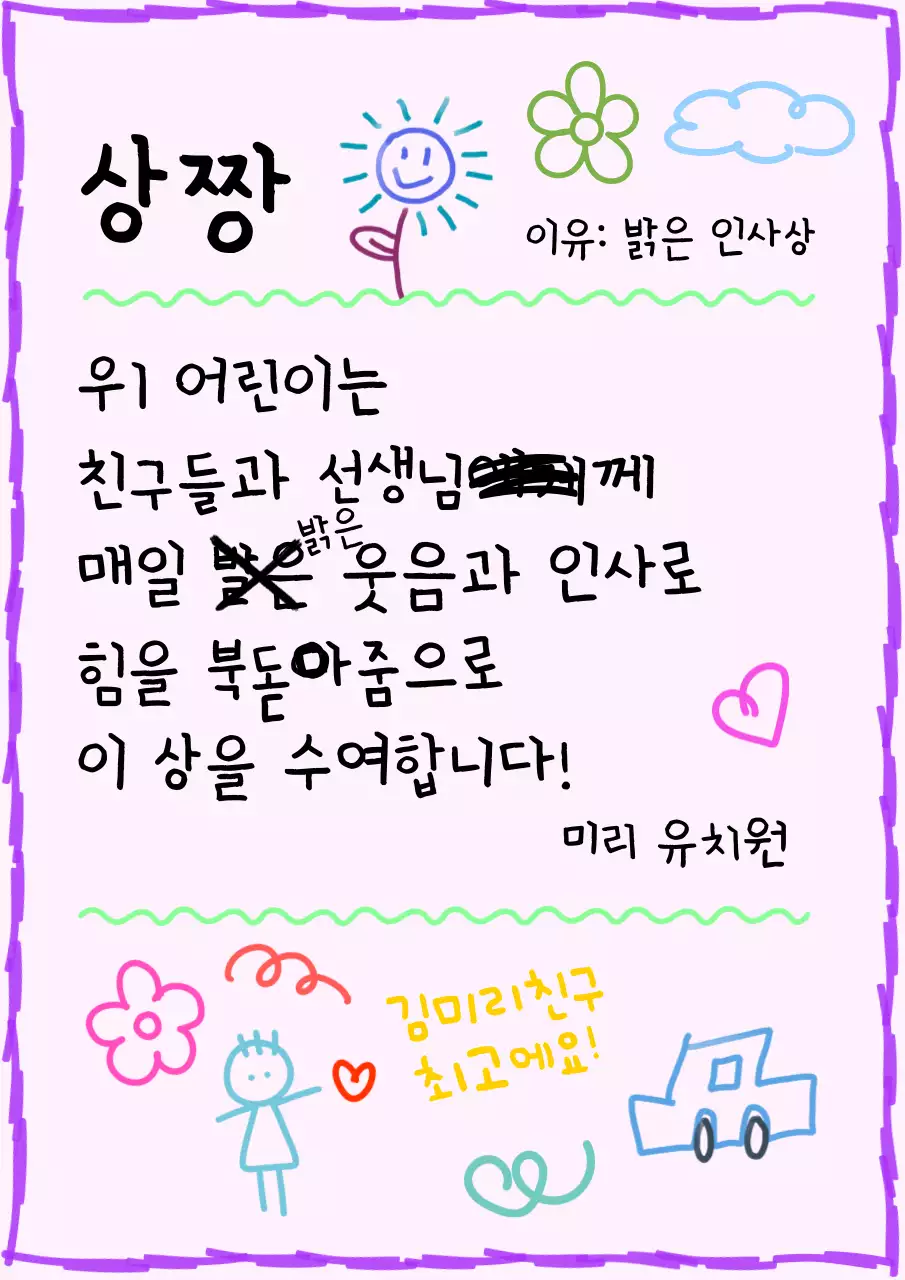 상짱
이유: 밝은 인사상
우1 어린이는
친구들과 선생님께
매일 밝은 웃음과 인사로
힘을 북돋아줌으로
이 상을 수여합니다!
미리 유치원
김미리친구
최고에요!